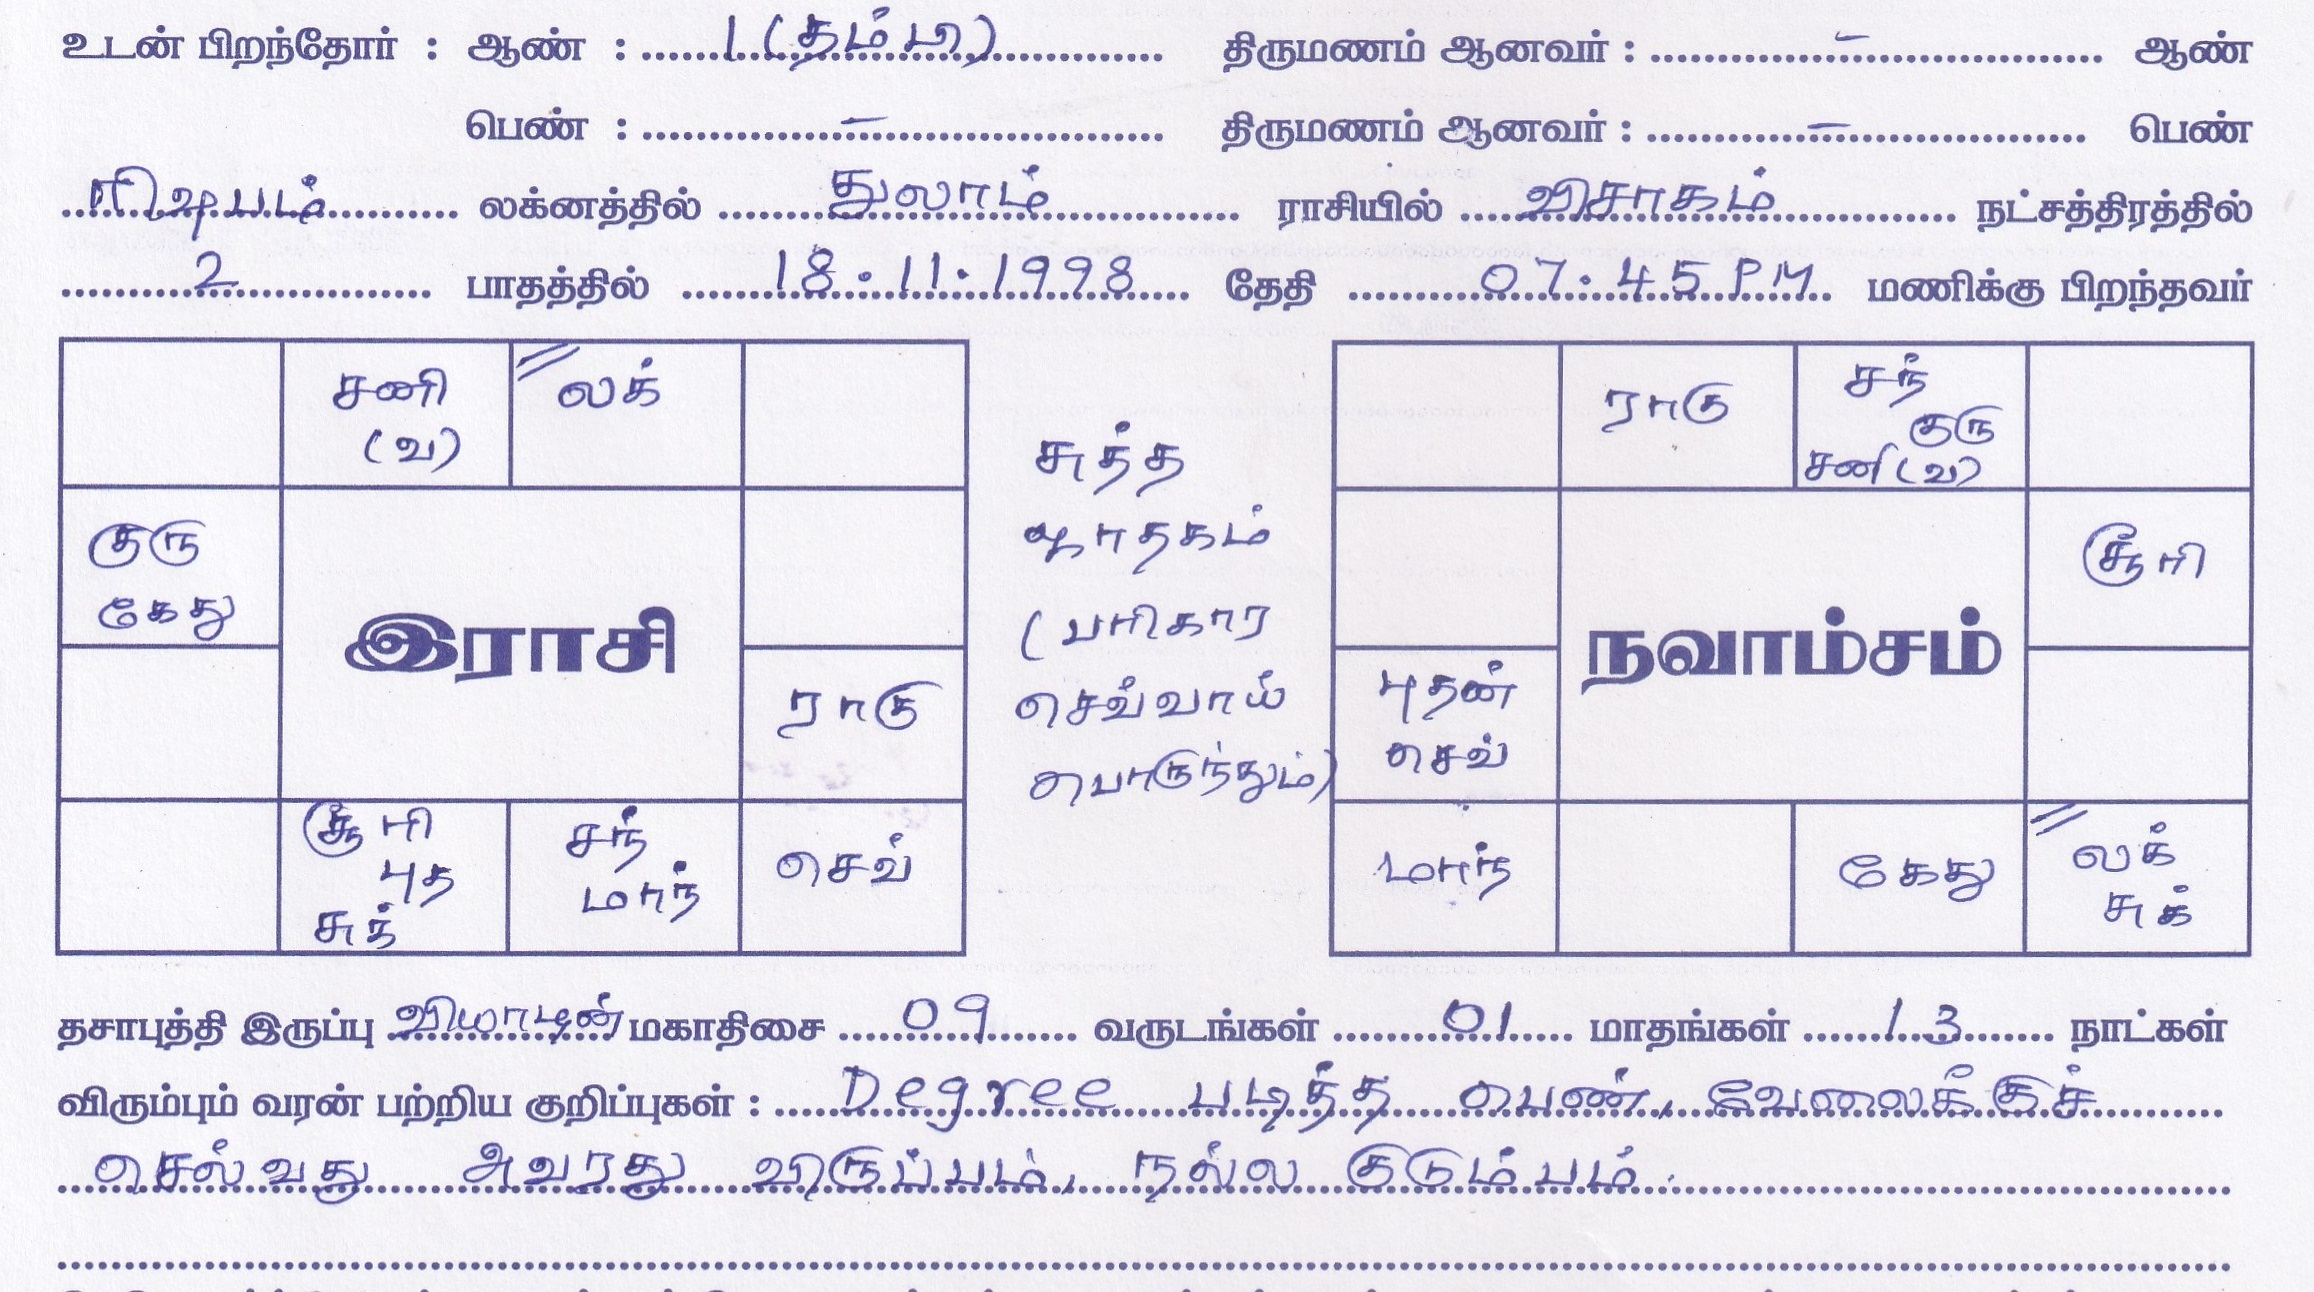 உடன் பிறந்தோர் : ஆண் : 1 (தம்பி) திருமணம் ஆனவர் : – ஆண்
பெண் : – திருமணம் ஆனவர் : – பெண்
ரிஷபம் லக்னத்தில் துலாம் ராசியில் விசாகம் நட்சத்திரத்தில்
2 பாதத்தில் 18.11.1998 தேதி 07.45 PM மணிக்கு பிறந்தவர்
சனி
(வ)
லக்
குரு
கேது
இராசி
ராகு
சூரி
புத
சுக்
சந்
மாந்
செவ்
சுத்த
ஜாதகம்
(பரிகார
செவ்வாய்
பொருந்தும்)
ராகு
சந்
குரு
சனி (வ)
சூரி
புதன்
செவ்
நவாம்சம்
மாந்
கேது
லக்
சுக்
தசாபுத்தி இருப்பு வியாழன் மகாதிசை 09 வருடங்கள் 01 மாதங்கள் 13 நாட்கள்
விரும்பும் வரன் பற்றிய குறிப்புகள் : Degree படித்த பெண், வேலைக்குச்
செல்வது அவரது விருப்பம், நல்ல குடும்பம்.